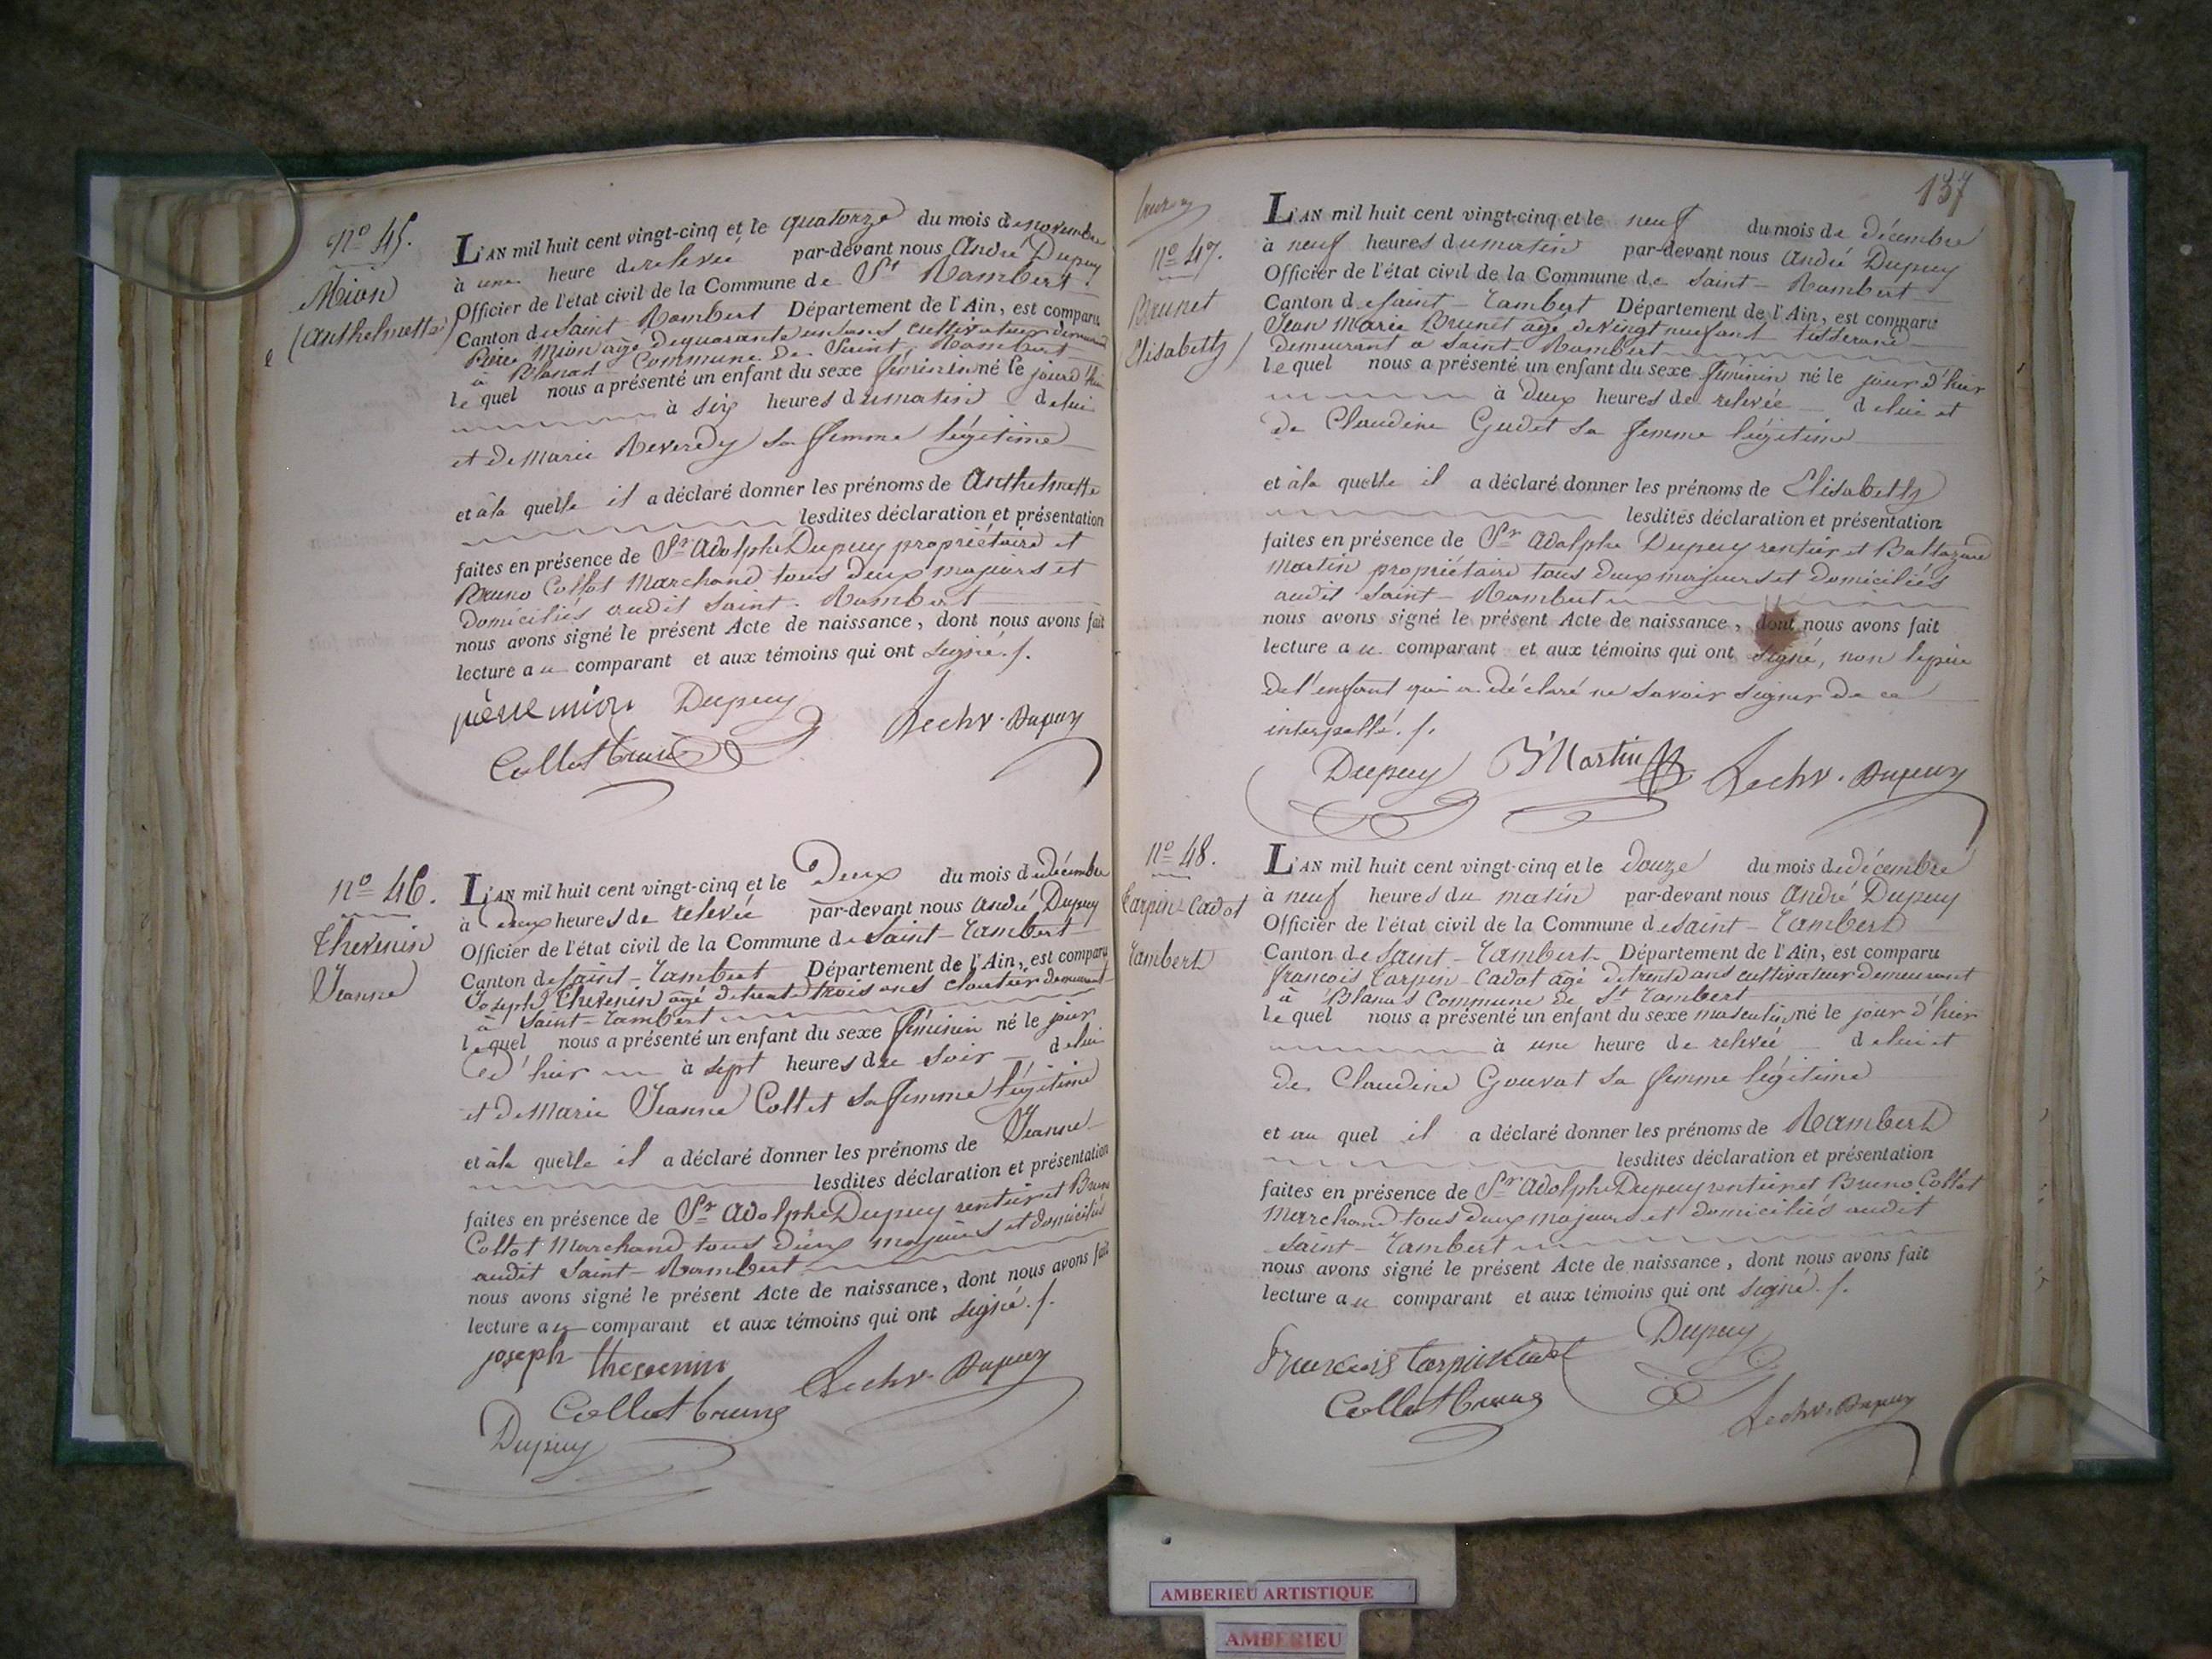 nº 45.
Mion
(Anthelmette)
L'AN mil huit cent vingt-cinq et le quatorze du mois de novembre
à une heure de relevée par-devant nous André Dupuy
Officier de l'état civil de la Commune de St Rambert
Canton de Saint-Rambert Département de l'Ain, est comparu
Mion agé de quarante un ans cultivateur demeurant
à Blanas Commune de Saint-Rambert
le quel nous a présenté un enfant du sexe féminin né le jour d'hier
à six heures du matin de lui
et de Marie Reverdy sa femme légitime
et à la quelle il a déclaré donner les prénoms de Anthelmette
lesdites déclaration et présentation
faites en présence de Sr Adolphe Dupuy propriétaire et
Bruno Collot Marchand tous deux majeurs et
domiciliés audit Saint-Rambert
nous avons signé le présent Acte de naissance, dont nous avons fait
lecture au comparant et aux témoins qui ont signé./.
mion Dupuy
Collot bruno
Dupuy
nº 46.
Thevenin
Jeanne
L'AN mil huit cent vingt-cinq et le Deux du mois de décembre
à deux heures de relevée par-devant nous André Dupuy
Officier de l'état civil de la Commune de Saint-Rambert
Canton de Saint-Rambert Département de l'Ain, est comparu
Joseph Thevenin agé de trente trois ans cloutier demeurant
à Saint-Rambert
le quel nous a présenté un enfant du sexe féminin né le jour
d'hier à sept heures du soir de lui
et de Marie Jeanne Collet sa femme légitime
et à la quelle il a déclaré donner les prénoms de Jeanne
lesdites déclaration et présentation
faites en présence de Sr Adolphe Dupuy rentier et Bruno
Collot Marchand tous deux majeurs et domiciliés
audit Saint-Rambert
nous avons signé le présent Acte de naissance, dont nous avons fait
lecture au comparant et aux témoins qui ont signé./.
joseph thevenin
Collot bruno
Dupuy
Dupuy
137
nº 47.
Brunet
Elisabeth
L'AN mil huit cent vingt-cinq et le neuf du mois de décembre
à neuf heures du matin par-devant nous André Dupuy
Officier de l'état civil de la Commune de Saint-Rambert
Canton de Saint-Rambert Département de l'Ain, est comparu
Jean Marie Brunet agé de vingt neuf ans tisserand
demeurant a Saint-Rambert
le quel nous a présenté un enfant du sexe féminin né le jour d'hier
à Deux heures de relevée de lui et
de Claudine Gudet sa femme légitime
et à la quelle il a déclaré donner les prénoms de Elisabeth
lesdites déclaration et présentation
faites en présence de Sr Adolphe Dupuy rentier et Baltazard
Martin propriétaire tous deux majeurs et domiciliés
audit Saint-Rambert
nous avons signé le présent Acte de naissance, dont nous avons fait
lecture au comparant et aux témoins qui ont signé, non le père
de l'enfant qui a déclaré ne savoir signer de ce
interpellé./.
Dupuy Martin Dupuy
nº 48.
Tarpin-Cadot
Rambert
L'AN mil huit cent vingt-cinq et le douze du mois de décembre
à neuf heures du matin par-devant nous André Dupuy
Officier de l'état civil de la Commune de Saint-Rambert
Canton de Saint-Rambert Département de l'Ain, est comparu
françois Tarpin-Cadot agé de trente ans cultivateur demeurant
à Blanas Commune de St Rambert
le quel nous a présenté un enfant du sexe masculin né le jour d'hier
à une heure de relevée de lui et
de Claudine Gouvat sa femme légitime
et au quel il a déclaré donner les prénoms de Rambert
lesdites déclaration et présentation
faites en présence de Sr Adolphe Dupuy rentier et Bruno Collot
Marchand tous deux majeurs et domiciliés audit
Saint-Rambert
nous avons signé le présent Acte de naissance, dont nous avons fait
lecture au comparant et aux témoins qui ont signé./.
Dupuy
Collot bruno
Dupuy
AMBERIEU ARTISTIQUE
AMBERIEU